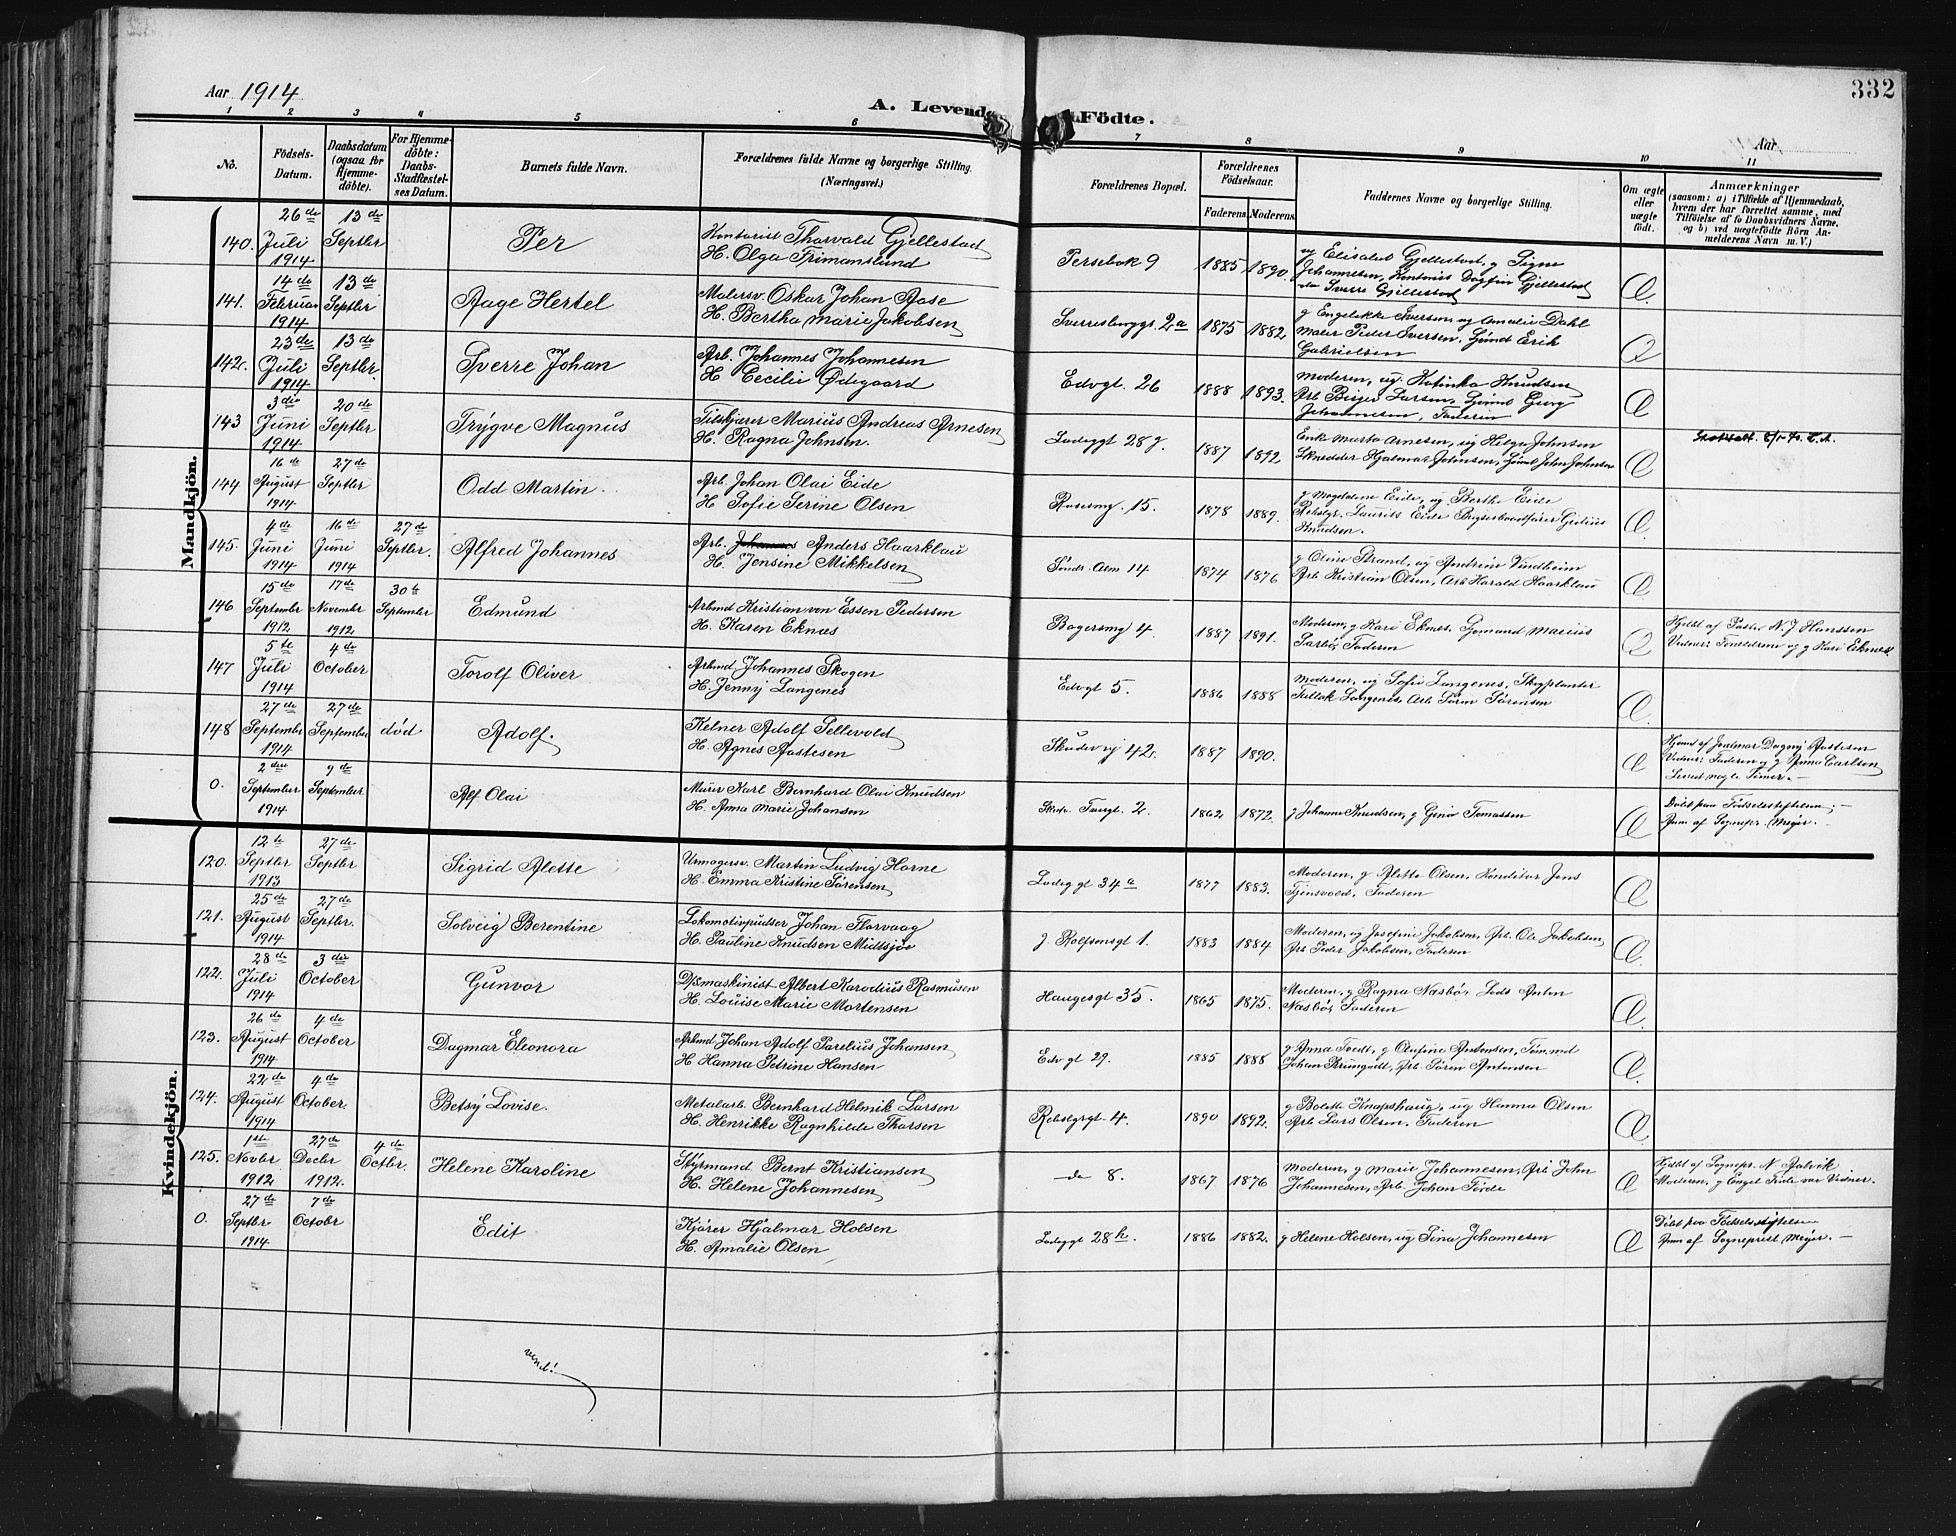 332
Aar 1914
A. Levende Födte.
Aar
1 2 3 4 5 6 7 8 9 10 11
No.
Födsels-Datum.
Daabsdatum (ogsaa for Hjemme-döbte).
For Hjemme-döbte: Daabs-Stadfæstel-ses Datum.
Barnets fulde Navn.
Forældrenes fulde Navne og borgerlige Stilling. (Næringsvei.)
Forældrenes Bopæl.
Forældrenes Födselsaar.
Faderens. Moderens.
Faddernes Navne og borgerlige Stilling.
Om ægte eller uægte födt.
Anmærkninger
(saasom: a) i Tilfælde af Hjemmedaab, hvem der har forrettet samme, med Tilföielse af to Daabsvidners Navne, og b) ved uægtefödte Börn An-melderens Navn m. V.)
Mandkjön.
140. 26de Juli 1914 13de Septbr Per
Kontorist Thorvald Gjellestad
H. Olga Frimanslund
Persebok 9 1885 1890.
ug Elisabet Gjellestad, g Signe
Johannesen, Kontorist Dagfin Gjellestad
do Sverre Gjellestad
Æ
141. 14de Februar 1914 13de Septbr Aage Hertel
Malersv. Oskar Johan Aase
H. Bertha Marie Jakobsen
Sverresborggt. 2a 1875 1882
g Engelikke Iversen, ug Amalie Dahl
Maler Peder Iversen, Sjömd Erik
Gabrielsen
Æ
142. 23de Juli 1914 13de Septbr. Sverre Johan
Arb. Johannes Johannesen
H Cecilie Ødegaard
Edvgt. 26 1888 1893.
Moderen, ug. Katinka Knudsen
Arb Birger Larsen, Sjömd Georg
Johannesen, Faderen
Æ
143 3die Juni 1914 20de Septbr Trygve Magnus
Marius Andreas Arnesen
H. Ragna Johnsen.
Ladeggt 28 g. 1887 1892
Enke Marta Arnesen, ug Helga Johnsen
Skrædder Hjalmar Johnsen, Sjömd John Johnsen
Æ
144 16de August 1914 27de Septbr Odd Martin.
Arb. Johan Olai Eide
H Sofie Serine Olsen
Rosesmg. 15. 1878 1889.
g Magdalene Eide, ug Berthe Eide
Rebslgr. Laurits Eide Gidius
Knudsen.
Æ
145. 4de Juni 1914 16de Juni 1914 27de Septbr. Alfred Johannes
Arb. Johannes Anders Haarklau
H. Jensine Mikkelsen
Söndr. Alm 14 1874 1876
g Oline Strand, ug Andrine Vindheim
Arb Kristian Olsen, Arb Harald Haarklau
Æ
146 15de September 1912 17de November 1912 30te September Edmund
Arbmd Kristian von Essen Pedersen
H. Karen Eknæs
Bagersmg 4. 1887 1891.
Moderen, g Kari Eknes, Marius
Faderen
Æ
Hjdöbt af Pastor N. J Hanssen
Vidner: Forældrene og g Kari Eknæs
147 5te Juli 1914 4de October Torolf Oliver
Arbmd Johannes Skogen
H. Jenny Langenes
Edvgt 5. 1886 1888
Moderen, ug Sofie Langenes,
Langenes, Arb Sörn Sörensen
Æ
148 27de September 1914 27de September død Adolf.
Kelner Adolf Sellevold
H. Agnes Aastesen
Skudev vj 42. 1887 1890.
Æ
Hjemd af Jordmor Dagny Aastesen
Vidner: Faderen og g Anna Carlsen
Levet nogle Timer.-
0. 2den September 1914 9de September Alf Olai
Murer Karl Bernhard Olai Knudsen
H. Anna Marie Johansen
Tvergt. 2 1862 1872.
g Johanne Knudsen, g Gina Tomassen
Æ
Döbt paa Födselsstiftelsen;-
Anm af Sognepr. Meyer.-
Kvindekjön.
120. 12te Septbr 1913 27de Septbr Sigrid Alette
Urmagersv. Martin Ludvig Horne
H. Emma Kristine Sörensen
Ladeggt 34a 1877 1883.
Moderen, g Alette Olsen, Konditor Jens
Tjensvold, Faderen
Æ
121. 25de August 1914 27de Septbr. Solveig Berentine
Lokomotivpudser Johan Florvaag
H. Pauline Knudsen Midtsjø
J. Rolfsmsgt 1. 1883 1884.
Moderen, ug Josefine Jakobsen, Arb. Ole Jakobsen
Arb Peder Jakobsen, Faderen
Æ
122. 28de Juli 1914 3die October Gunvor
D/smaskinist Albert Karodius Rasmusen
H. Louise Marie Mortensen
Haugesgt 35. 1865 1875.
Moderen, g Ragna Næsbö, Lods Anton
Næsbö, Faderen
Æ
123. 26de August 1914 4de October Dagmar Eleonora
Arbmd Johan Adolf Parelius Johansen
H Hanna Petrine Hansen
Edvgt 29. 1885 1888
g Anna Tvedt, g Olufine Antonsen, Tömmd
Johan Strumpedt, Arb. Sören Antonsen
Æ
124. 22de August 1914 4de October. Betsy Lovise.
Metalarb. Bernhard Helmik Larsen
H. Henrikke Ragnhilde Thorsen
Rebslgrgt 4. 1890 1892.
g Bolette Knapshaug, ug Hanna Olsen
Arb Lars Olsen, Faderen
Æ
125. 1ste Novbr 1912 27de Decbr 1912. 4de Octbr. Helene Karoline
Styrmand Bernt Kristiansen
H. Helene Johannesen
-do 8. 1867 1876
Moderen, g Marie Johannesen, Arb John
Johannesen, Arb Johan Förde
Æ
Hjdöbt af Sognepr. N Balvik
Moderen, g Engel Förde var Vidner.
0. 27de Septbr 1914 7de Octobr Edit
Kjörer Hjalmar Holsen
H. Amalie Olsen
Ladeggt 28h. 1886 1882.
g Helene Holsen, ug Sina Johannesen
Æ
Döbt paa Födselsstiftelsen
Anm af Sogneprest Meyer.-
vend!